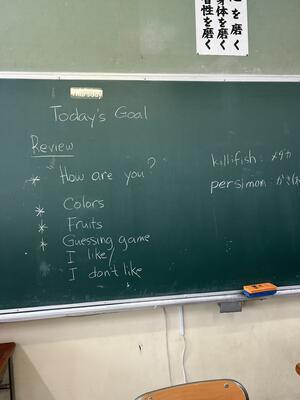 を磨く
身体を磨く
性を磨く
Thursday
Today's Goal
Review
* "How are you?"
* Colors
* Fruits
* Guessing game
I like
I don't like
killifish : メダカ
persimon : かき